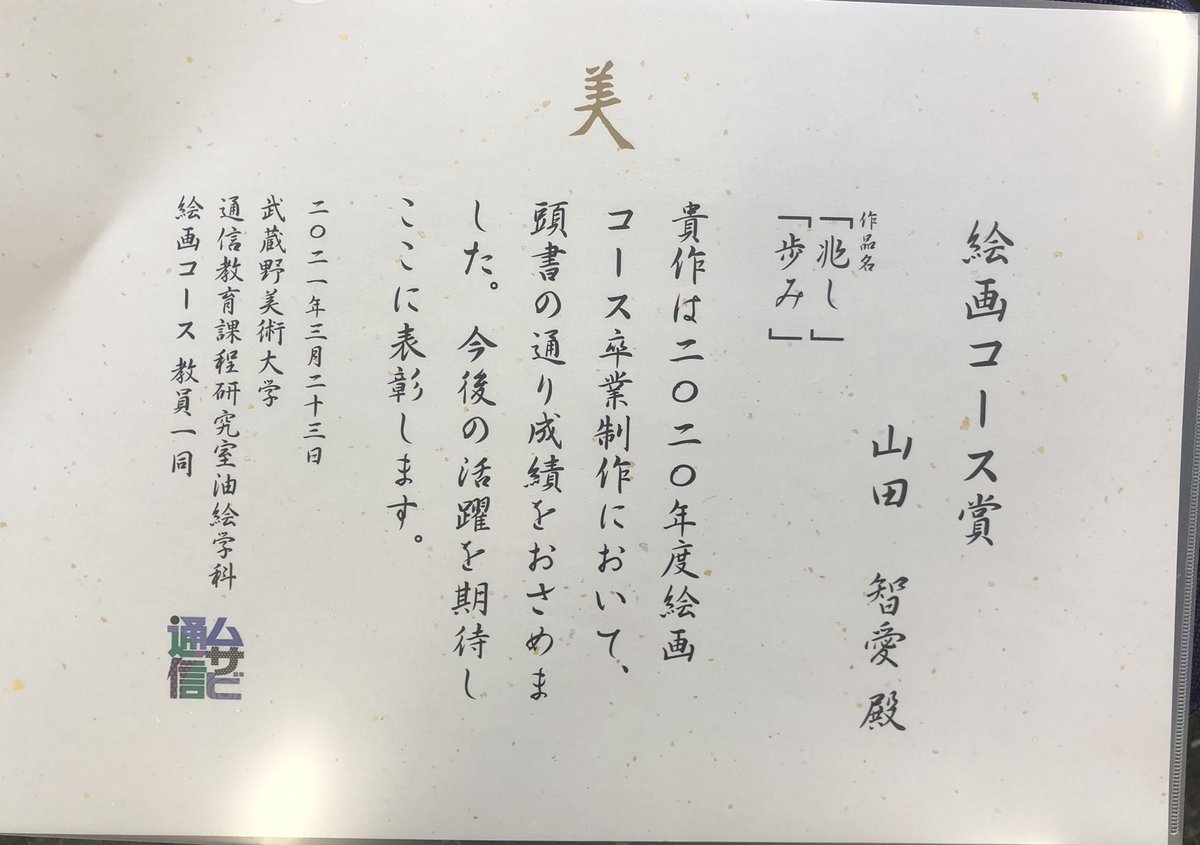 美
絵画コース賞
山田 智愛 殿
作品名
「兆し」
「歩み」
貴作は二〇二〇年度絵画
コース卒業制作において、
頭書の通り成績をおさめま
した。今後の活躍を期待し
ここに表彰します。
二〇二一年三月二十三日
武蔵野美術大学
通信教育課程研究室油絵学科
絵画コース 教員一同
ムサビ
通信